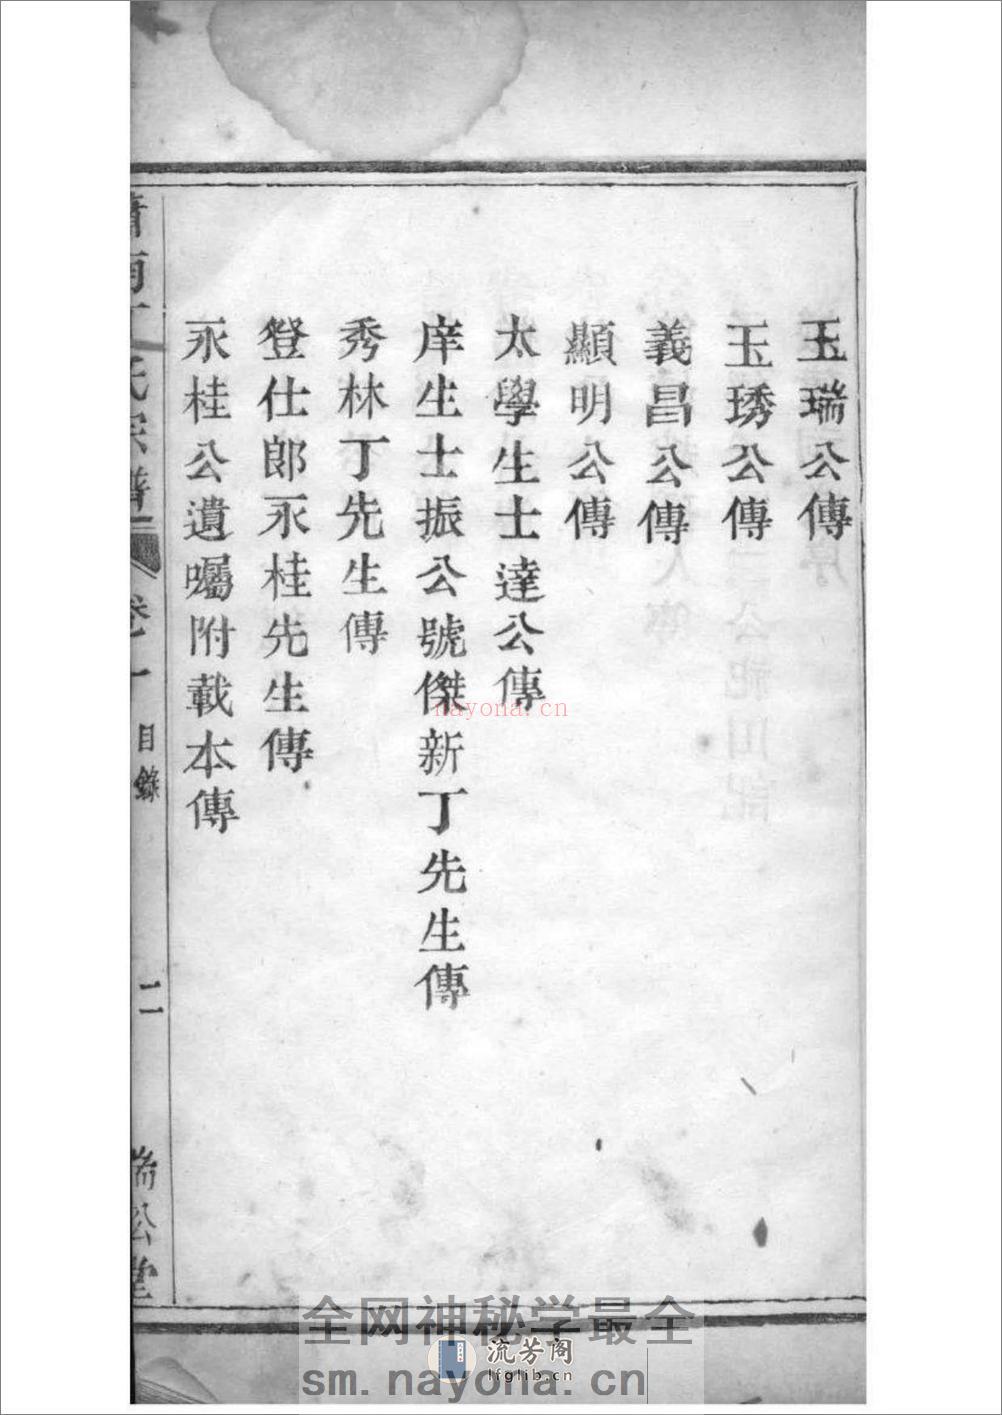 玉瑞公傳
玉琇公傳
義昌公傳
顯明公傳
太學生士達公傳
庠生士振公號傑新丁先生傳
秀林丁先生傳
登仕郎永桂先生傳
永桂公遺囑附載本傳
丁氏宗譜
卷一
目錄
二
nayona.cn
全网神秘学最全
流芳阁
lfglib.cn
sm.nayona.cn